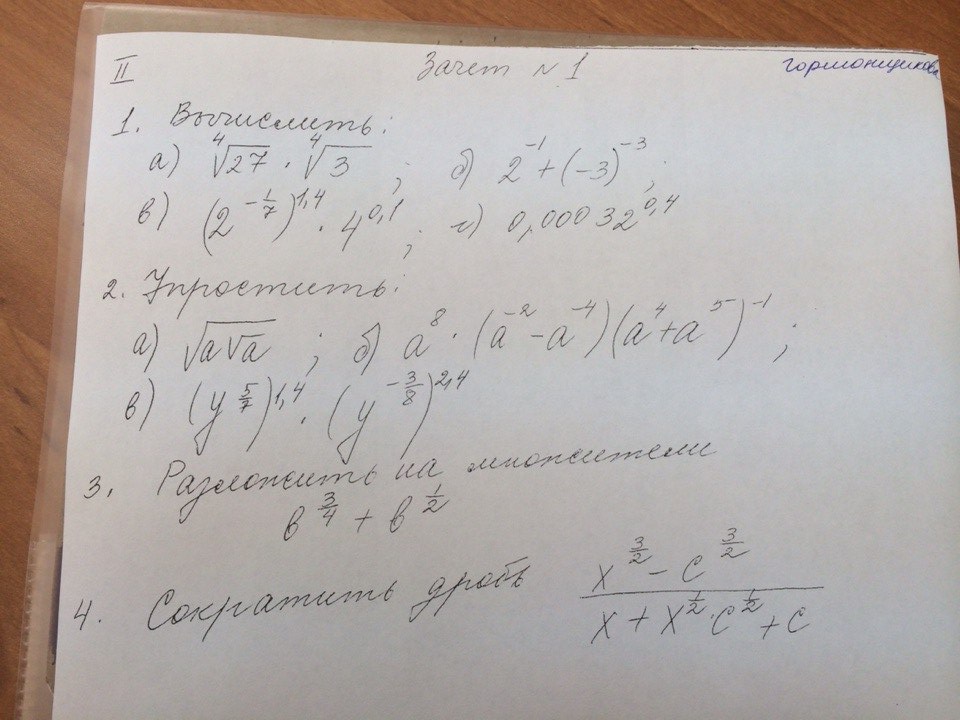 II Зачет №1 Гормонщиков
1. Вычислить:
а) ∜27 · ∜3 ; б) 2⁻¹ + (-3)⁻³ ;
в) (2^(-1/7))^1,4 · 4^0,1 ; г) 0,00032^0,4
2. Упростить:
а) √(a√a) ; б) a⁸ · (a⁻² - a⁻⁴)(a⁴ + a⁵)⁻¹ ;
в) (y^(5/7))^1,4 · (y^(-3/8))^2,4
3. Разложить на множители
в^(3/4) + в^(1/2)
4. Сократить дробь (x^(3/2) - c^(3/2)) / (x + x^(1/2) · c^(1/2) + c)